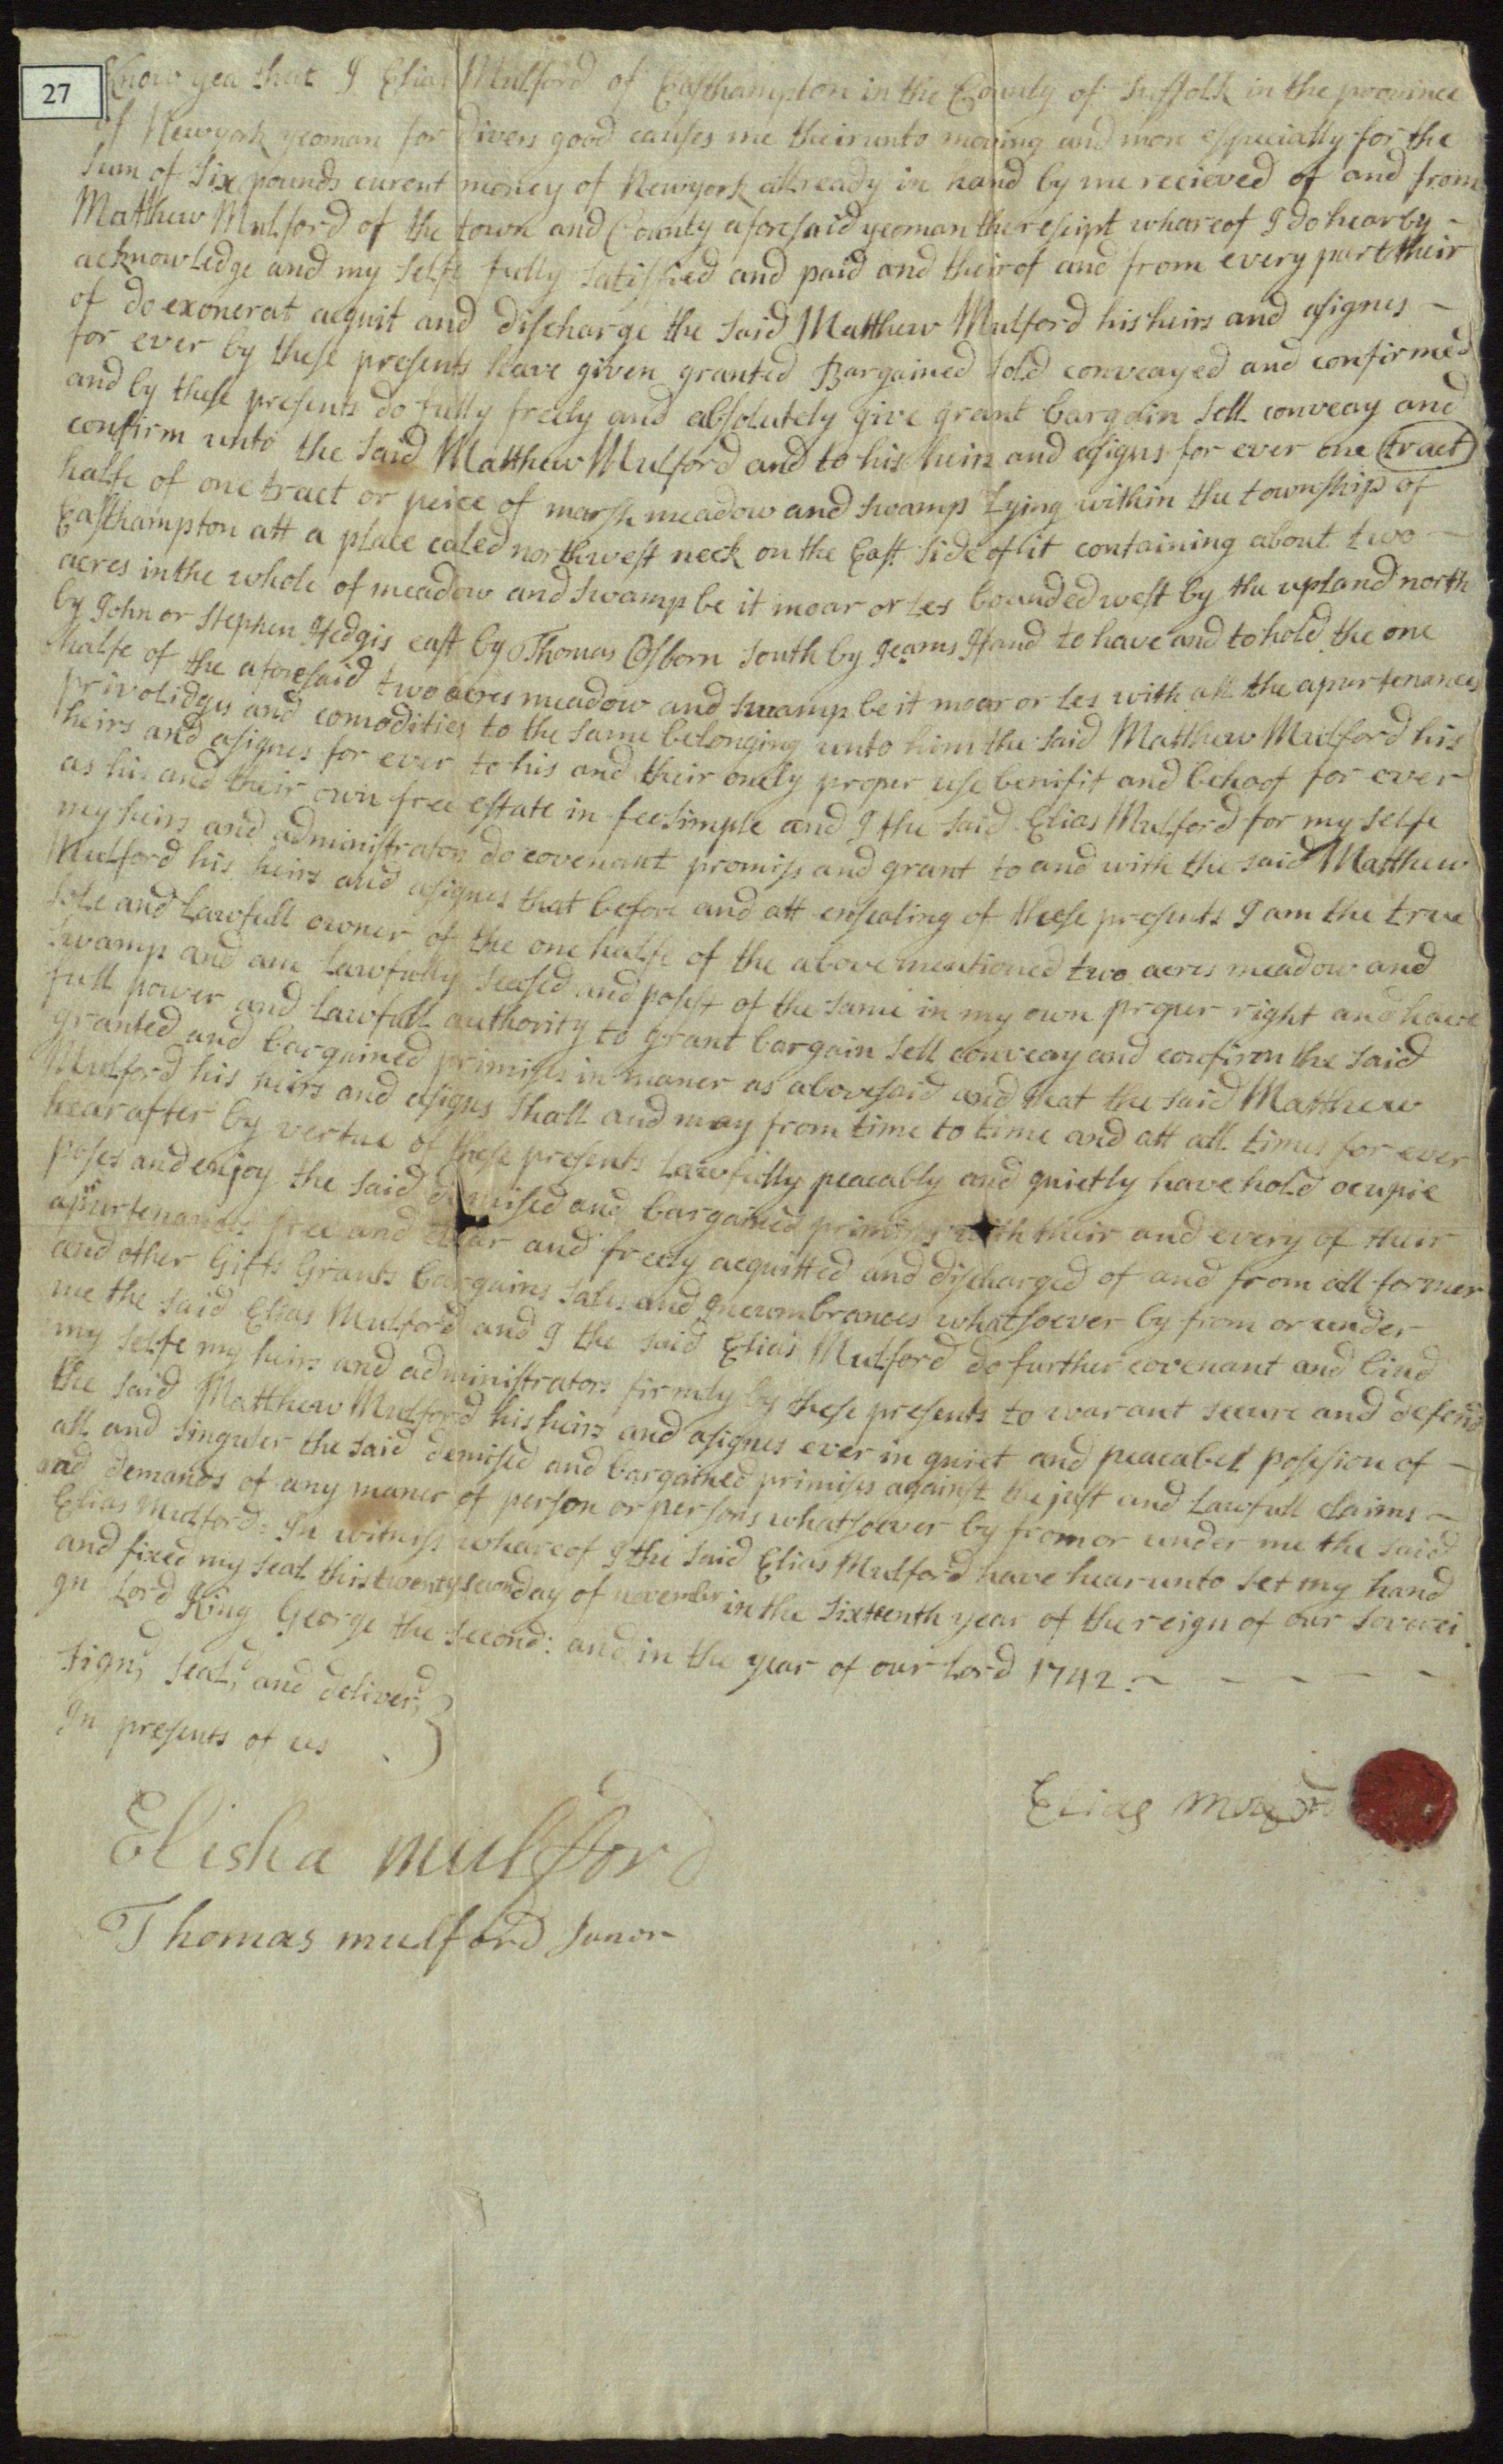 27
Know yea that I Elias Mulford of Easthampton in the County of Suffolk in the province
of Newyork yeoman for divers good causes me theirunto moving and more especially for the
Sum of Six pounds curent money of Newyork allready in hand by me recieved of and from
Matthew Mulford of the town and County aforesaid yeoman the reseipt whareof I do hearby
acknowledge and my selfe fully satisfied and paid and theirof and from every part their
of do exonerat acquit and discharge the said Matthew Mulford his heirs and asignes
for ever by these presents have given granted Bargained sold conveayed and confirmed
and by these presents do fully freely and absolutely give grant bargain sell conveay and
confirm unto the said Matthew Mulford and to his heirs and asigns for ever one tract
halfe of one tract or peice of marsh meadow and swamp Lying within the township of
Easthampton att a place caled northwest neck on the East side of it containing about two
acres in the whole of meadow and swamp be it moar or les bounded west by the upland north
by John or Stephen Hedgis east by Thomas Osborn south by Jeams Hand to have and to hold the one
halfe of the aforesaid two acres meadow and swamp be it moar or les with all the apurtenances
privolidges and comodities to the same belonging unto him the said Matthew Mulford his
heirs and asignes for ever to his and their onely proper use benifit and behoof for ever
as his and their own free estate in feesimple and I the said Elias Mulford for my selfe
my heirs and administrators do covenant promiss and grant to and with the said Matthew
Mulford his heirs and asignes that before and att ensealing of these presents I am the true
sole and Lawfull owner of the one halfe of the above mentioned two acres meadow and
swamp and am Lawfully seased and posest of the same in my own proper right and have
full power and Lawfull authority to grant bargain sell conveay and confirm the said
granted and bargained primises in maner as abovesaid and that the said Matthew
Mulford his heirs and asigns shall and may from time to time and att all times for ever
hearafter by vertue of these presents Lawfully peaceably and quietly have hold ocupie
poses and enjoy the said demised and bargained primises with their and every of their
apurtenances free and clear and freely acquitted and discharged of and from all former
and other Gifts Grants bargains sales and Incumbrances whatsoever by from or under
me the said Elias Mulford and I the said Elias Mulford do further covenant and bind
my selfe my heirs and administrators firmly by these presents to warant secure and defend
the said Matthew Mulford his heirs and asignes ever in quiet and peacabel posesion of
all and singuler the said demised and bargained primises against the just and Lawfull claims
and demands of any maner of person or persons whatsoever by from or under me the said
Elias Mulford: In witness whareof I the said Elias Mulford have hearunto set my hand
and fixed my seal this twenty second day of november in the sixteenth year of the reign of our soverei
gn Lord King George the second: and in the year of our Lord 1742
Signd, seald, and deliverd,
In presents of us
Elias Mulford
Elisha mulfford
Thomas mulford Junor